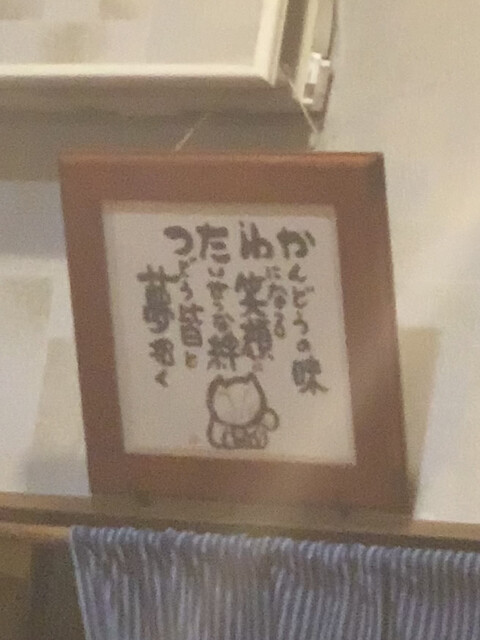 かんどうの味
わになる笑顔に
たいせつな絆
つどう皆と
夢